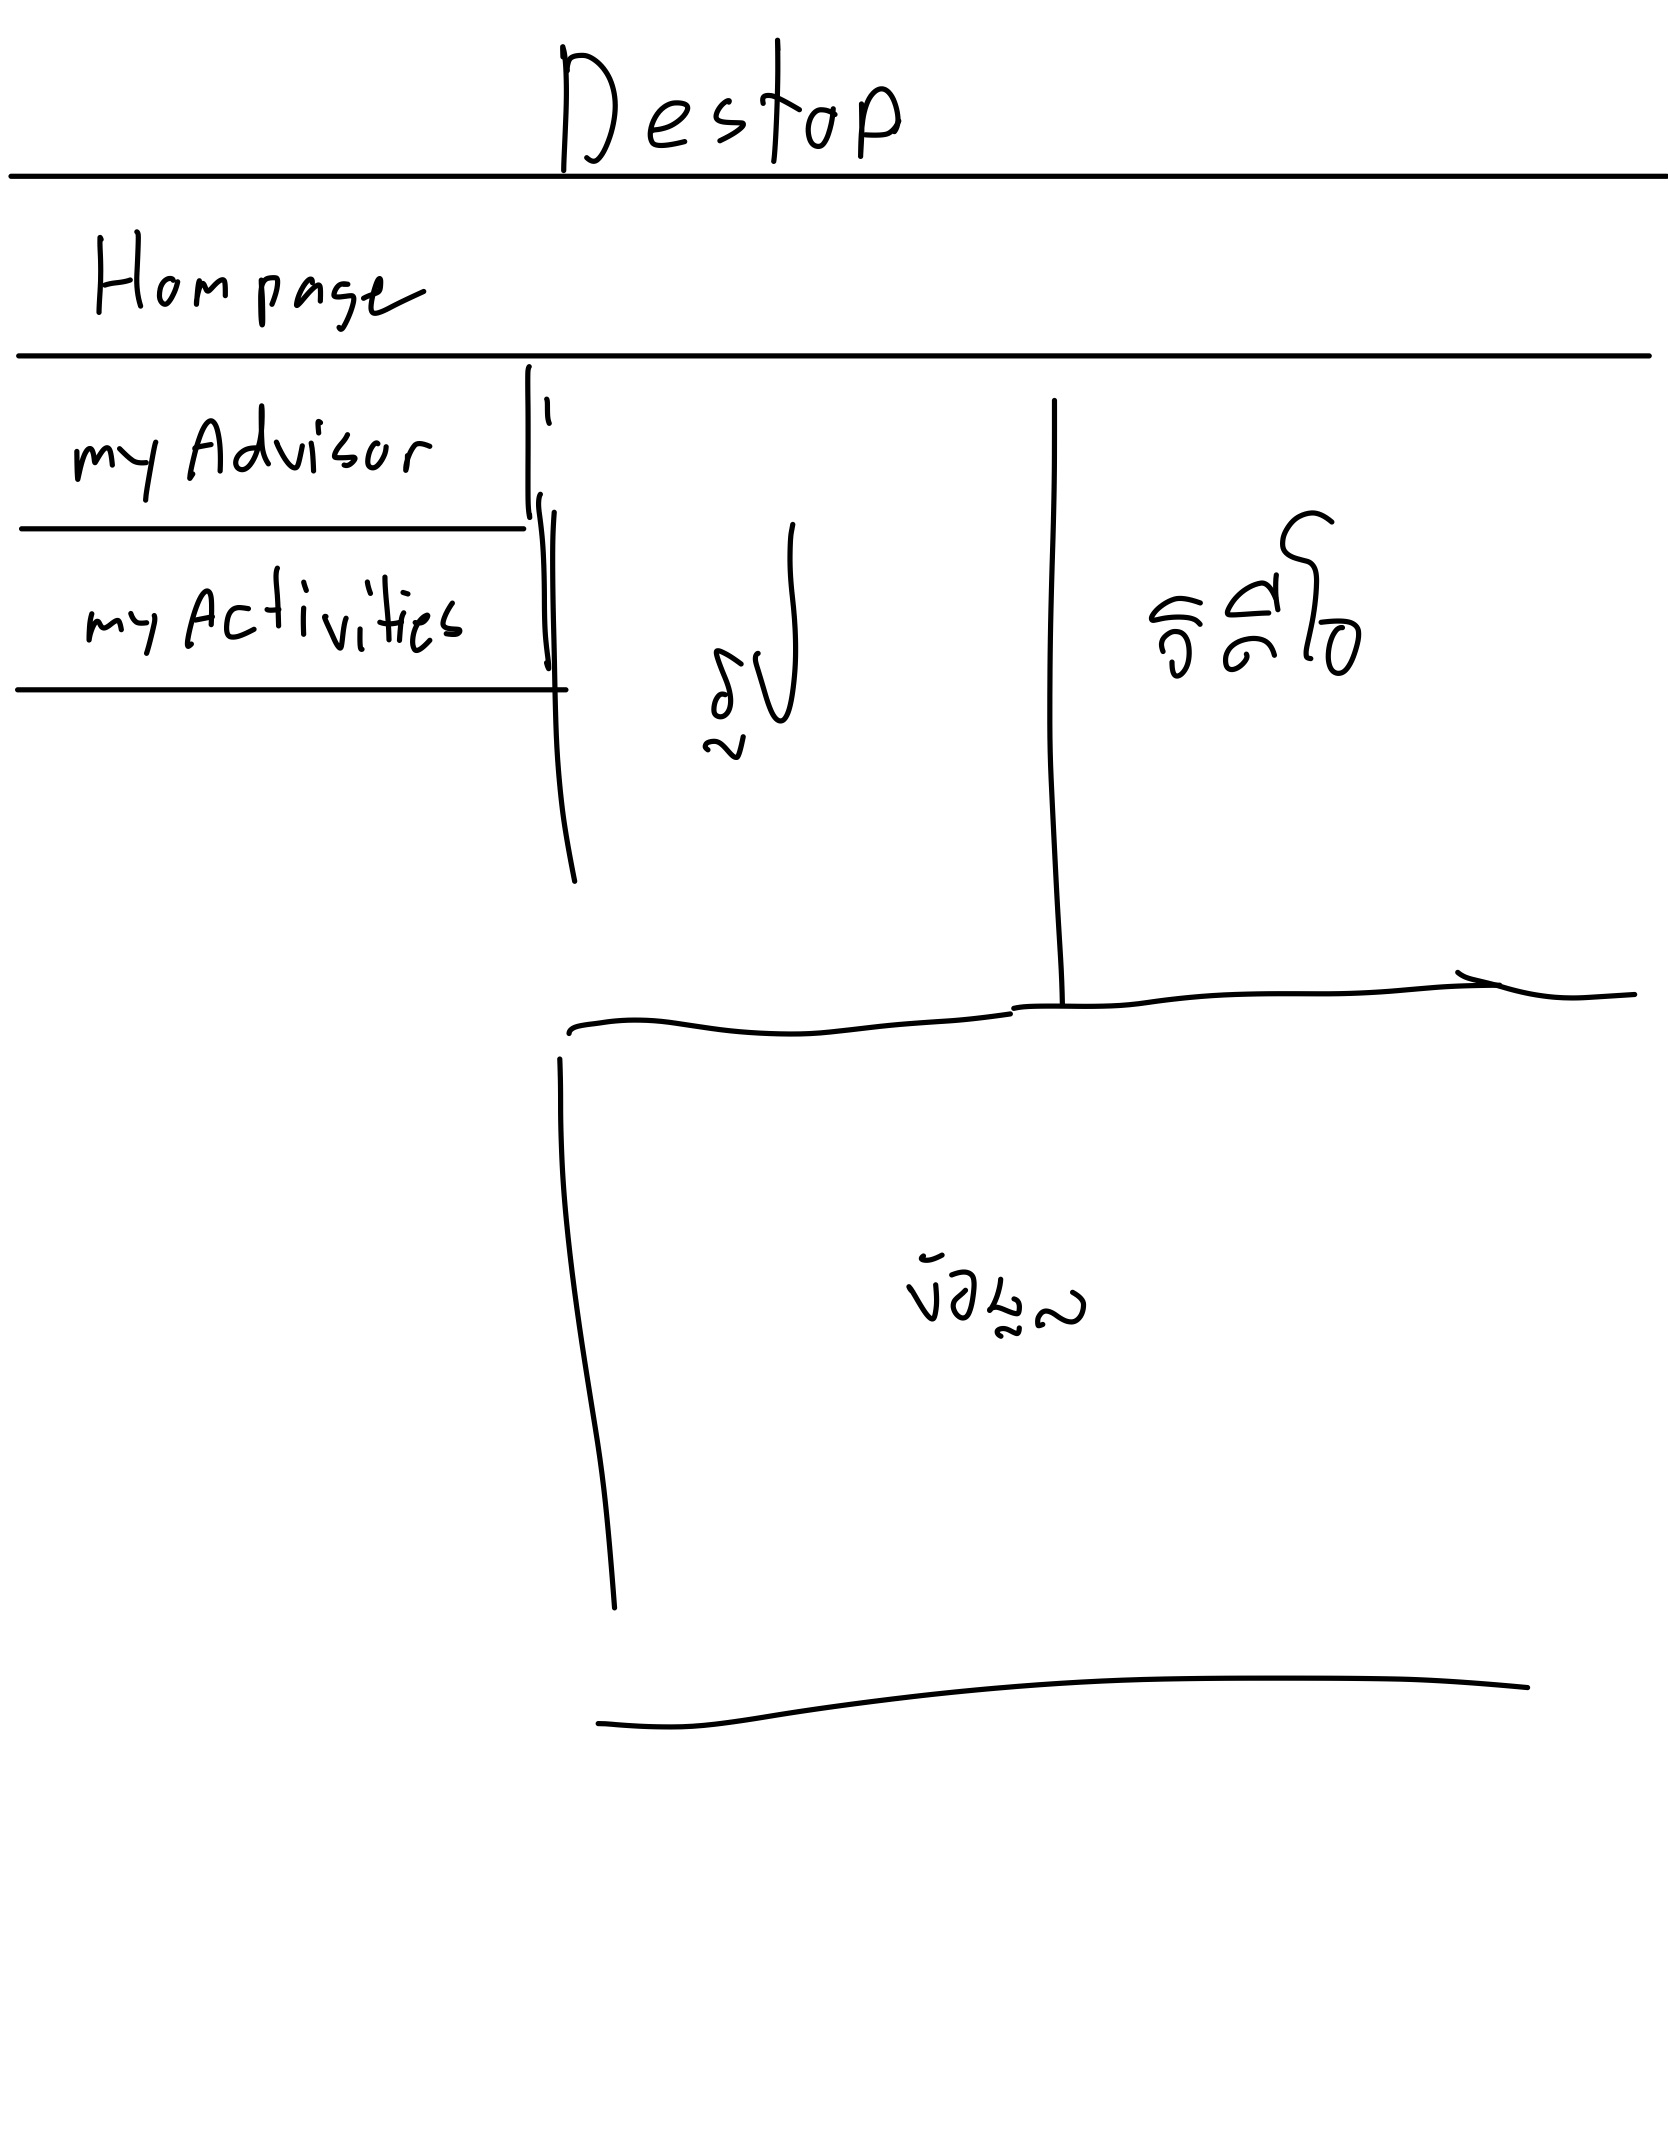 Destop
Hompage
my Advisor
my Activities
รูป
วิดีโอ
ข้อมูล